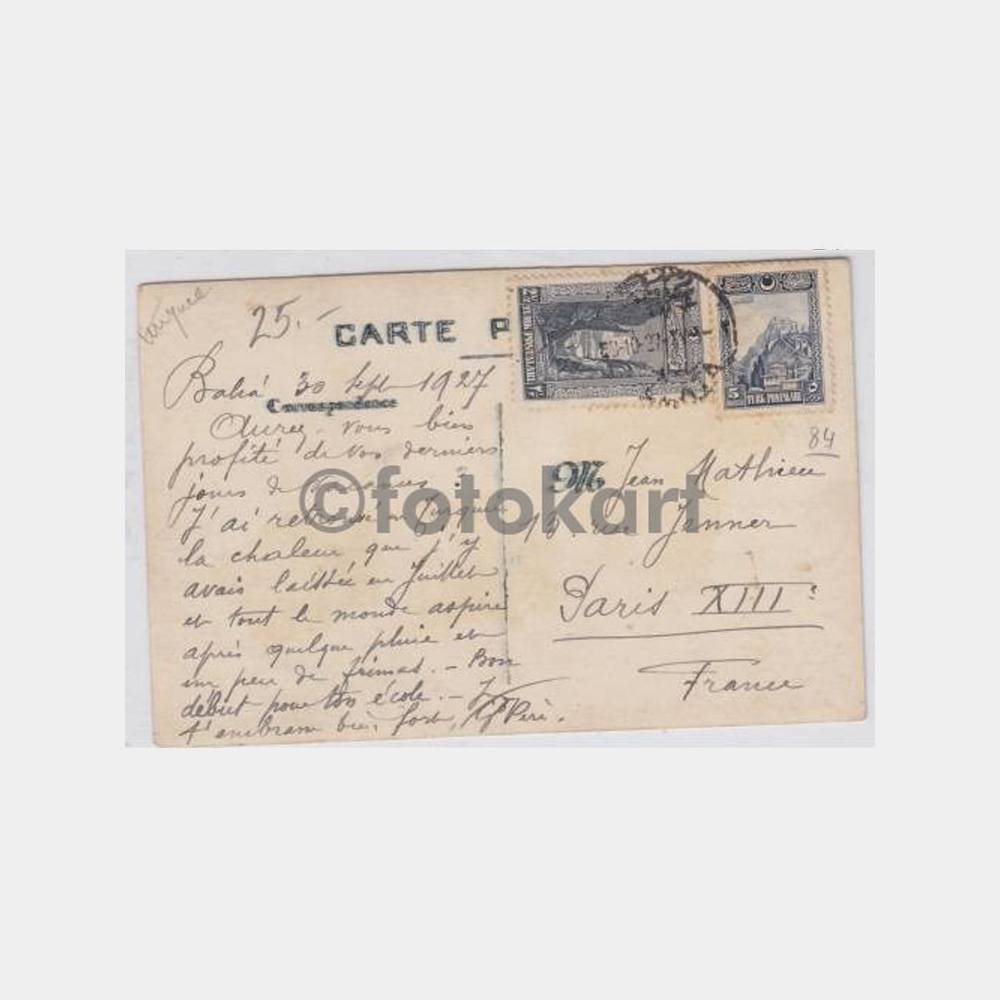 Turquie
25.-
CARTE P
Balia 30 Sept 1927
Correspondance
Aurez-vous bien
profité de vos derniers
jours de ?
J'ai retrouvé en Turquie
la chaleur que j'y
avais laissée en Juillet
et tout le monde aspire
après quelque pluie et
un peu de frimas. - Bon
début pour ton école. - Je
t'embrasse bien fort, Père.
2½ TÜRK POSTALARI
5 TÜRK POSTALARI
84
M. Jean Mathieu
rue Jenner
Paris XIIIe
France
©fotokart